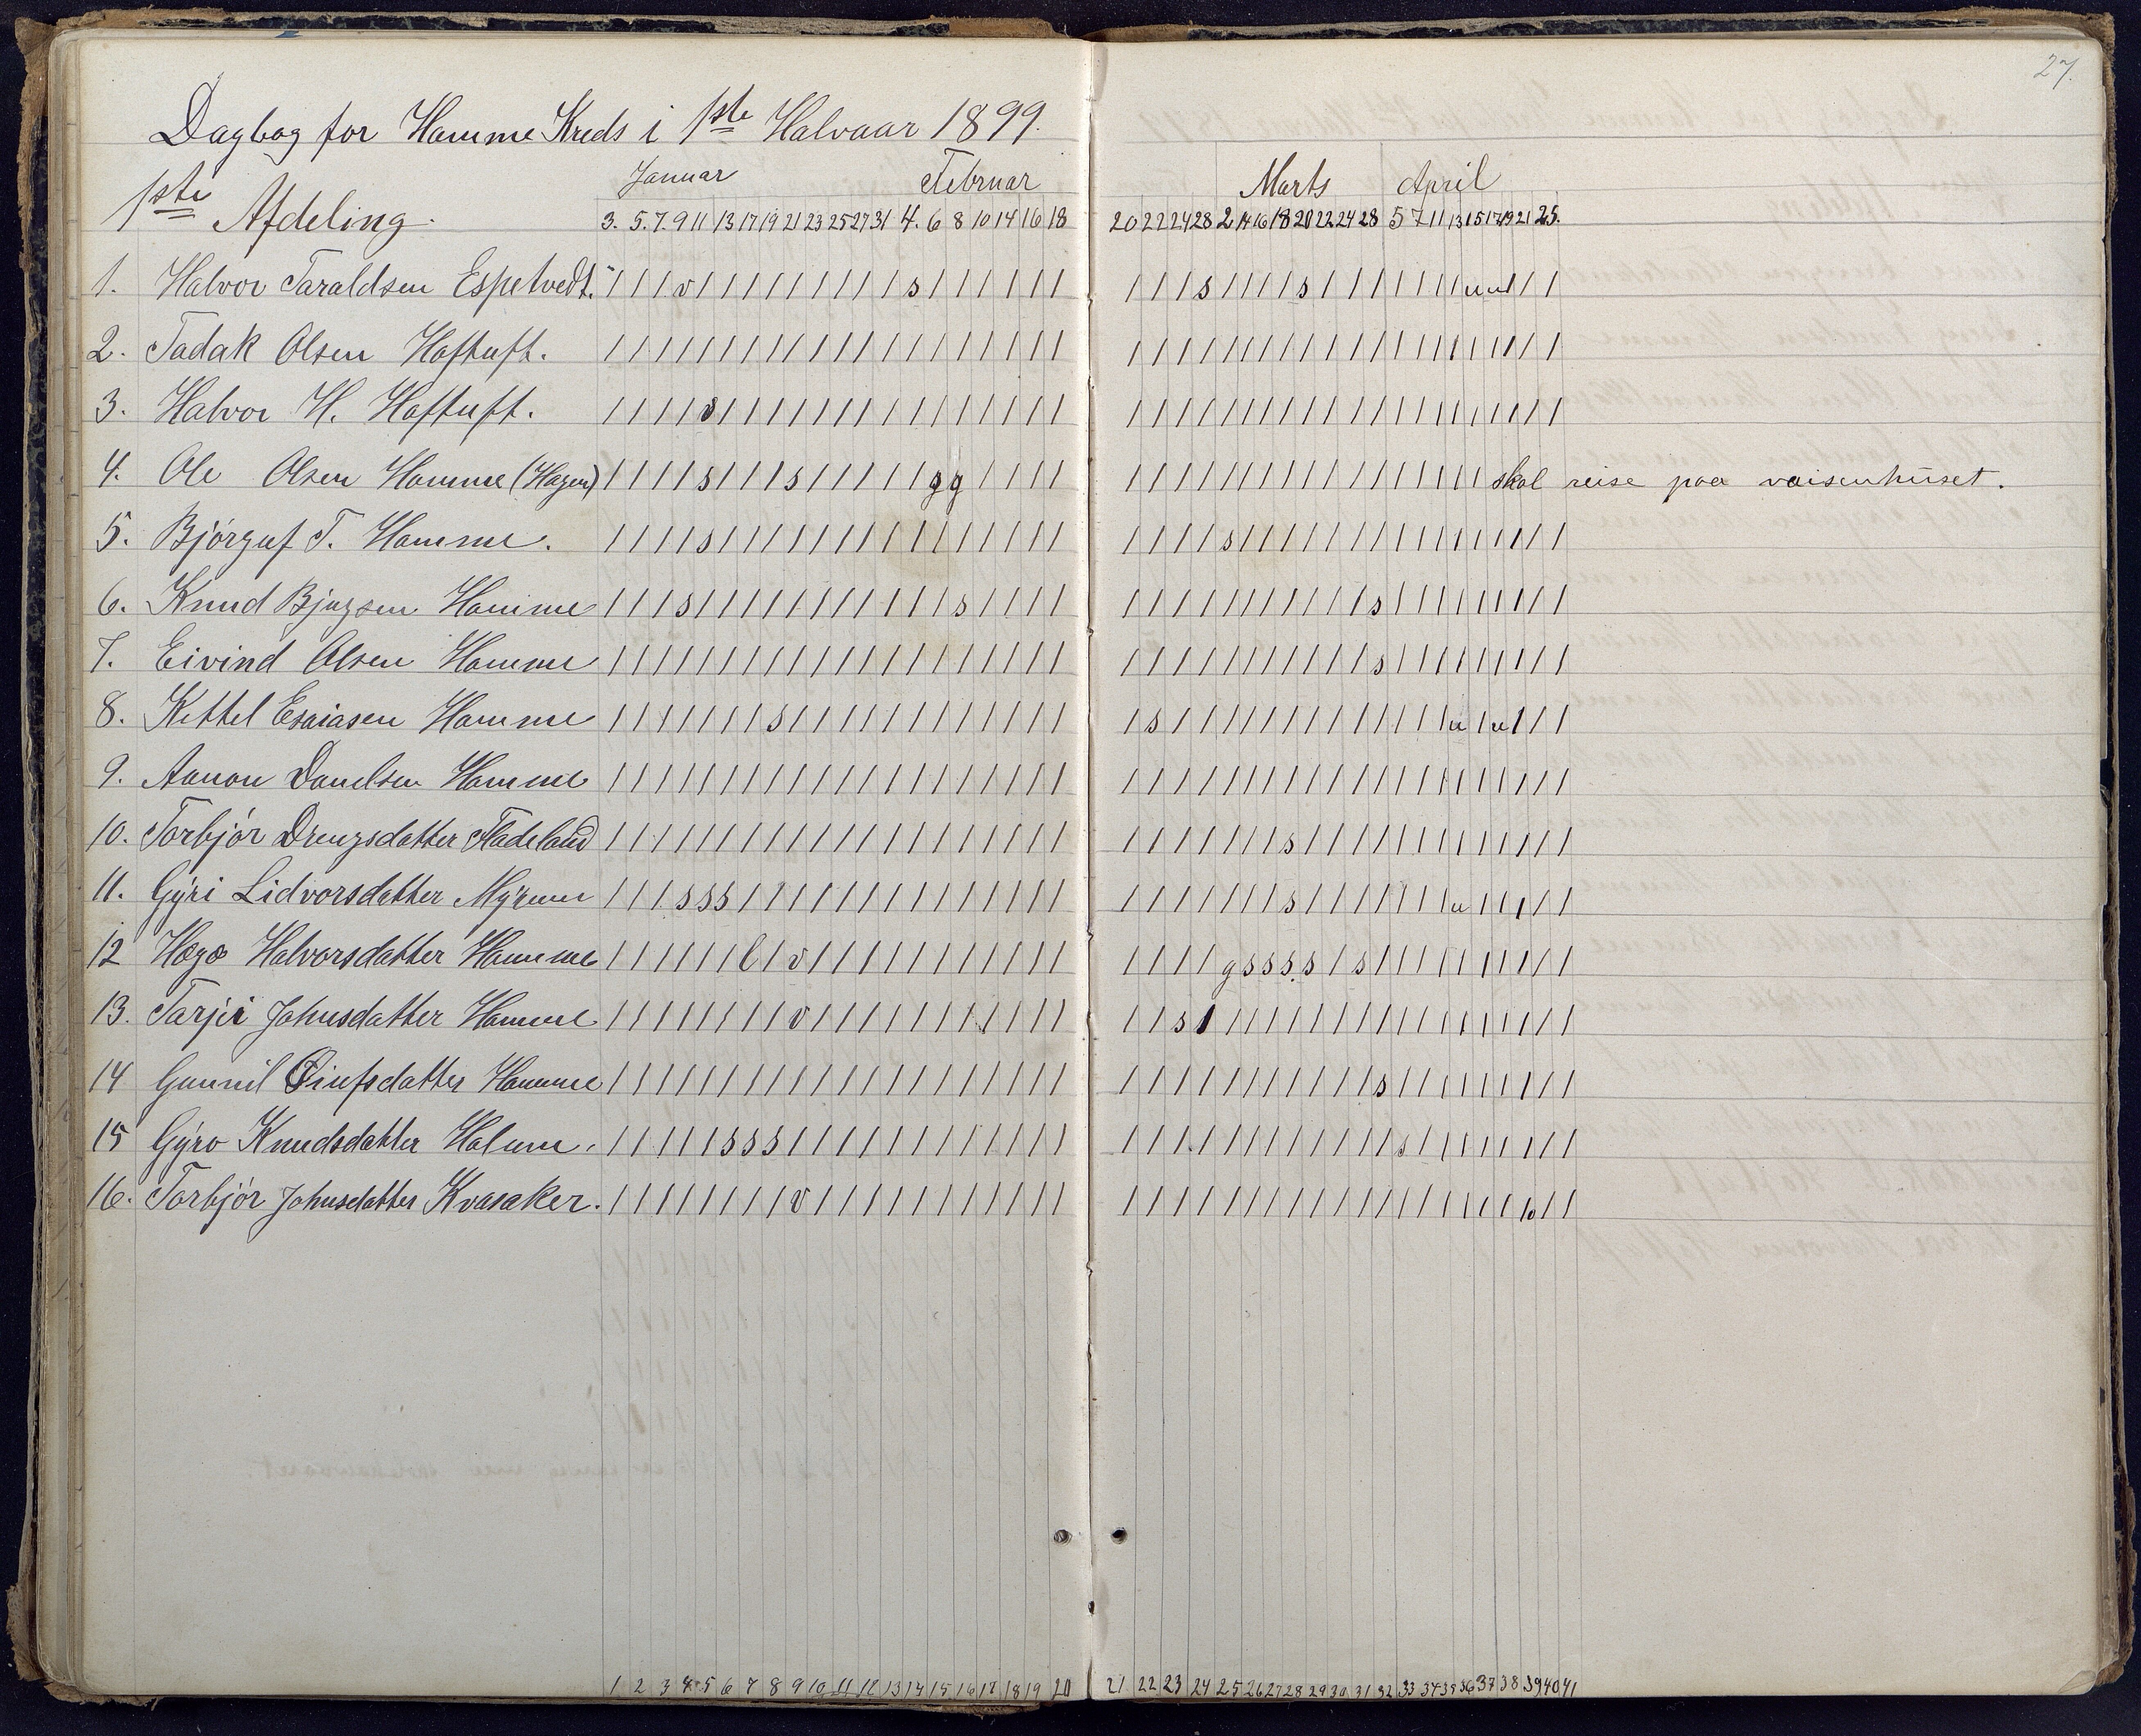 27.
Dagbog for Hamme Kreds i 1ste Halvaar 1899.
Januar Februar Marts April
1ste Afdeling.
3. 5. 7. 9 11 13 17 19 21 23 25 27 31 4. 6 8 10 14 16 18 20 22 24 28 2 14 16 18 20 22 24 28 5 7 11 13 15 17 19 21 25.
1. Halvor Taraldsen Espetvedt. / / / v / / / / / / / / / s / / / / / / / / / s / / / / s / / / / / / / u u / / /
2. Tadak Olsen Haftuft.
3. Halvor H. Haftuft. s
4. Ole Olsen Hamme (Hagen) / / / / s / / / s / / / / / g g / / / / skal reise paa vaisenhuset.
5. Bjørguf T. Hamme. s s
6. Knud Bjugsen Hamme s s s
7. Eivind Olsen Hamme s
8. Kittel Esaiasen Hamme s s u u
9. Aanon Danelsen Hamme
10. Torbjør Drengsdatter Fladeland s
11. Gýri Lidvorsdatter Mýrene s s s s u
12 Hægo Halvorsdatter Hamme l v g s s s s s
13. Tarjei Johnsdatter Hamme v s
14 Gunnil Oiufsdatter Hamme s
15 Gýro Knudsdatter Halum. s s s s
16. Torbjør Johnsdatter Kvasaker. v
1 2 3 4 5 6 7 8 9 10 11 12 13 14 15 16 17 18 19 20 21 22 23 24 25 26 27 28 29 30 31 32 33 34 35 36 37 38 39 40 41